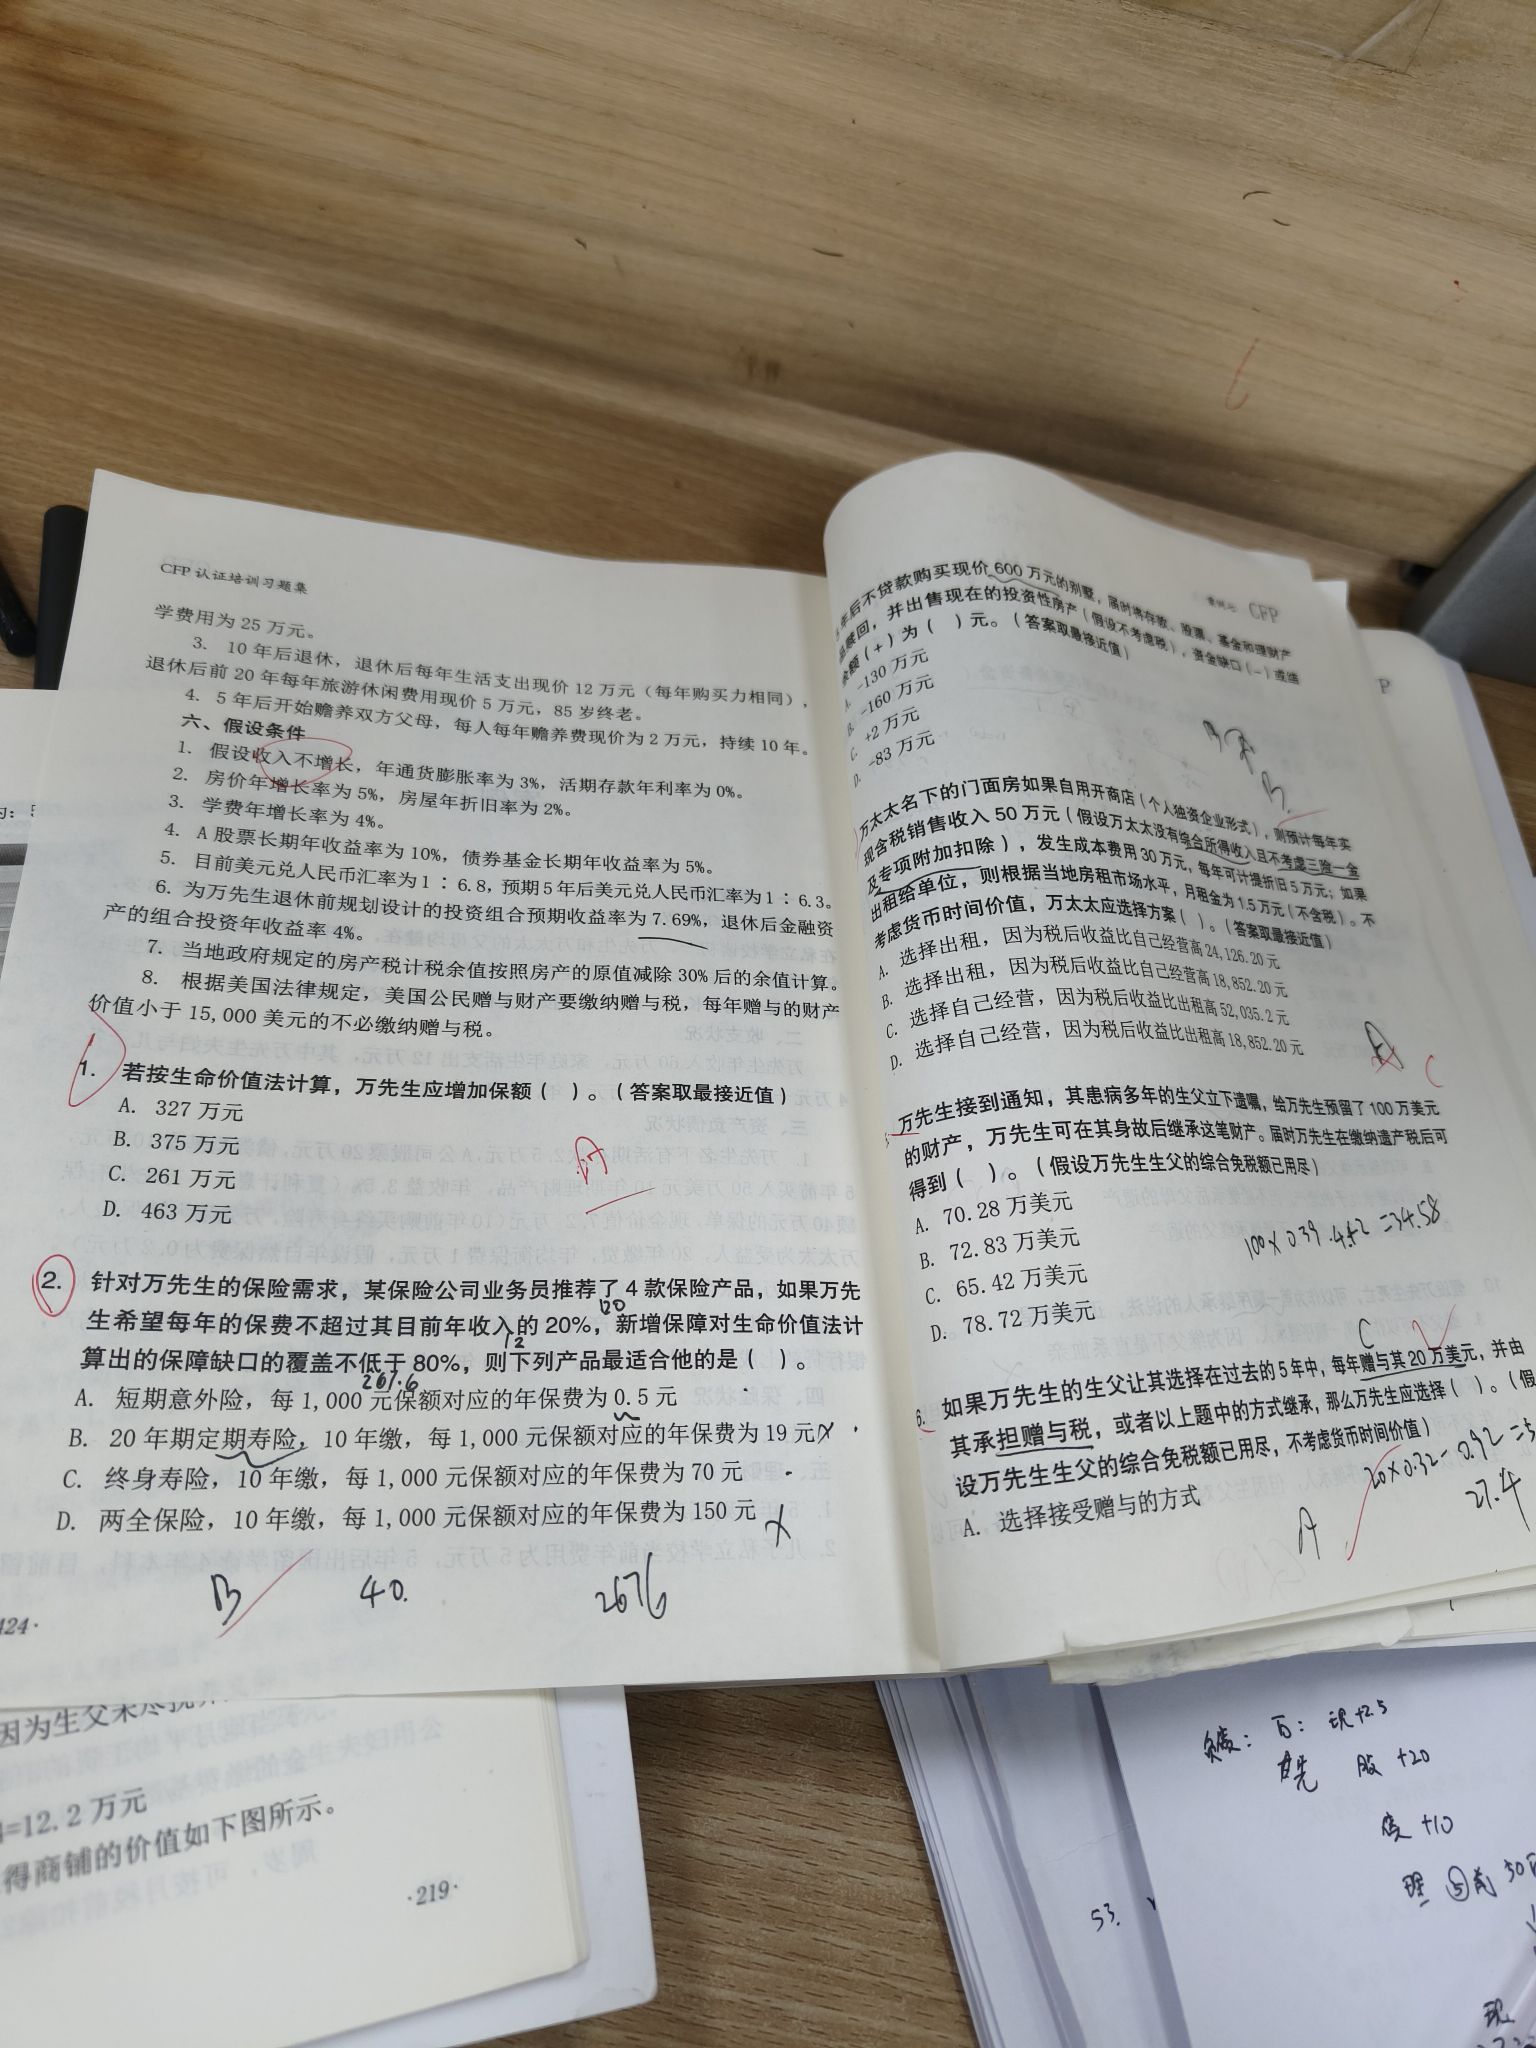 CFP 认证培训习题集
学费用为 25 万元。
3. 10 年后退休，退休后每年生活支出现价 12 万元（每年购买力相同），
退休后前 20 年每年旅游休闲费用现价 5 万元，85 岁终老。
4. 5 年后开始赡养双方父母，每人每年赡养费现价为 2 万元，持续 10 年。
六、假设条件
1. 假设收入不增长，年通货膨胀率为 3%，活期存款年利率为 0%。
2. 房价年增长率为 5%，房屋年折旧率为 2%。
3. 学费年增长率为 4%。
4. A 股票长期年收益率为 10%，债券基金长期年收益率为 5%。
5. 目前美元兑人民币汇率为 1：6.8，预期 5 年后美元兑人民币汇率为 1：6.3。
6. 为万先生退休前规划设计的投资组合预期收益率为 7.69%，退休后金融资
产的组合投资年收益率 4%。
7. 当地政府规定的房产税计税余值按照房产的原值减除 30% 后的余值计算。
8. 根据美国法律规定，美国公民赠与财产要缴纳赠与税，每年赠与的财产
价值小于 15,000 美元的不必缴纳赠与税。
1. 若按生命价值法计算，万先生应增加保额（ ）。（答案取最接近值）
A. 327 万元
B. 375 万元
C. 261 万元
D. 463 万元
A
2. 针对万先生的保险需求，某保险公司业务员推荐了 4 款保险产品，如果万先
生希望每年的保费不超过其目前年收入的 20%，新增保障对生命价值法计
算出的保障缺口的覆盖不低于 80%，则下列产品最适合他的是（ ）。
12
A. 短期意外险，每 1,000 元保额对应的年保费为 0.5 元
B. 20 年期定期寿险，10 年缴，每 1,000 元保额对应的年保费为 19 元
C. 终身寿险，10 年缴，每 1,000 元保额对应的年保费为 70 元
D. 两全保险，10 年缴，每 1,000 元保额对应的年保费为 150 元
B 40. 2676
424·
CFP
年后不贷款购买现价 600 万元的别墅，届时将存款、股票、基金和理财产
品赎回，并出售现在的投资性房产（假设不考虑税），资金缺口（-）或结
余额（+）为（ ）元。（答案取最接近值）
-130 万元
B. -160 万元
C. +2 万元
D. -83 万元
B
万太太名下的门面房如果自用开商店（个人独资企业形式），则预计每年实
现含税销售收入 50 万元（假设万太太没有综合所得收入且不考虑三险一金
及专项附加扣除），发生成本费用 30 万元，每年可计提折旧 5 万元；如果
出租给单位，则根据当地房租市场水平，月租金为 1.5 万元（不含税）。不
考虑货币时间价值，万太太应选择方案（ ）。（答案取最接近值）
A. 选择出租，因为税后收益比自己经营高 24,126.20 元
B. 选择出租，因为税后收益比自己经营高 18,852.20 元
C. 选择自己经营，因为税后收益比出租高 52,035.2 元
D. 选择自己经营，因为税后收益比出租高 18,852.20 元
C
万先生接到通知，其患病多年的生父立下遗嘱，给万先生预留了 100 万美元
的财产，万先生可在其身故后继承这笔财产。届时万先生在缴纳遗产税后可
得到（ ）。（假设万先生生父的综合免税额已用尽）
A. 70.28 万美元
B. 72.83 万美元
C. 65.42 万美元
D. 78.72 万美元
C
6. 如果万先生的生父让其选择在过去的 5 年中，每年赠与其 20 万美元，并由
其承担赠与税，或者以上题中的方式继承，那么万先生应选择（ ）。（假
设万先生生父的综合免税额已用尽，不考虑货币时间价值）
A. 选择接受赠与的方式
A
27.4
=12.2 万元
得商铺的价值如下图所示。
·219·
现 +2.5
股 +20
+10
53.
现